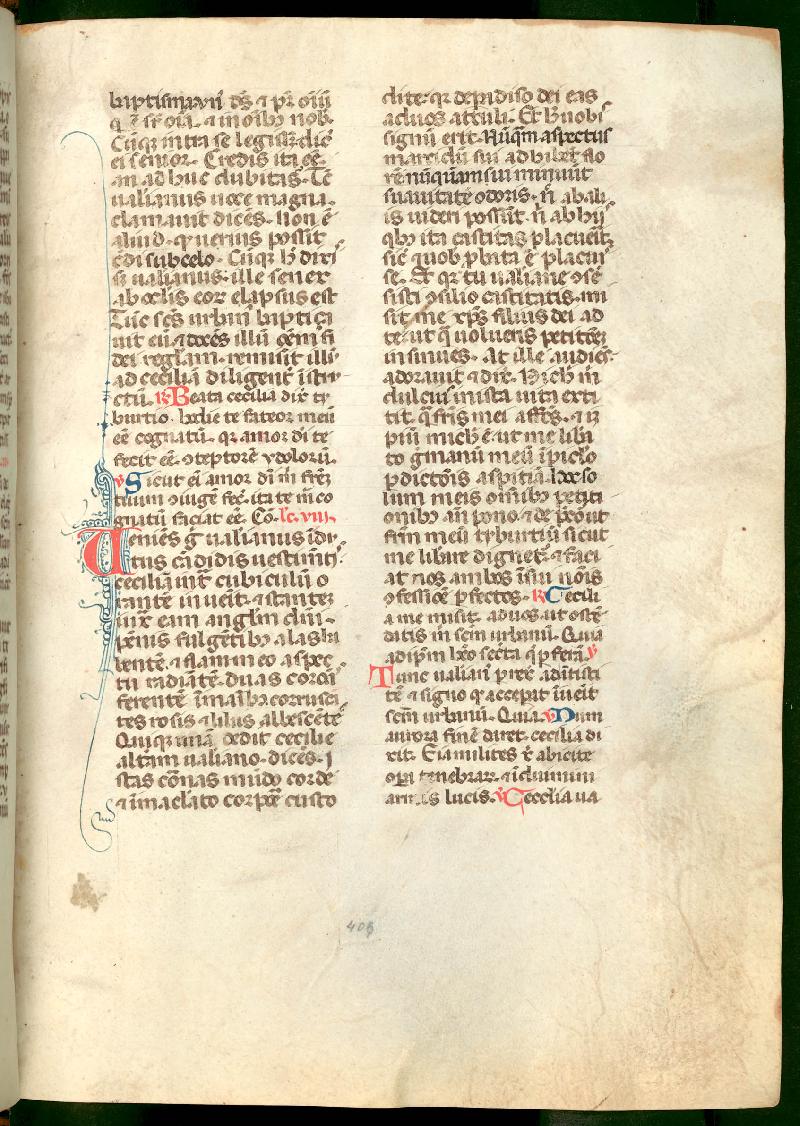 baptismavn̄. ds̄ ⁊ pr̄ oīū
q ē sr̄ oīa. ⁊ in oībꝫ nob̄.
Cūqꝫ intra se legissꝫ dic̄
ei senior. Credis ita eē.
an ad huc dubitas. Tc̄
ualianus uoce magna
clamauit dicēs. Non ē
aliud. qꝫ uerius possit
c̄di subcelo. Cūqꝫ h̄ dixi
sꝫ ualianus. ille senex
ab oclis eoꝝ elapsus est
Tūc sc̄s urbān baptiça
uit eū. ⁊ docēs illū oēm fi
dei reglam. remisit illū
ad ceciliā diligent̄ īstr
ctū. R Beata cecilia dix̄ ty
burtio. hodie te fateor meū
eē cognatū. qꝛ amor dī te
fecit eē. ꝯteptorē ydoloꝝ.
v Sicut eī amor dī m̄ frēꝫ
tuum ꝯiugē fec̄. ita te m̄ co
gnatū faciat eē. Cō. lc̄. viii.
Ueniēs g̊ ualianus īdu
tus cādidis uestimēt̄.
ceciliā int̄ cubiculū o
rantē inuēit. ⁊ stantez
iux̄ eam anglm dn̄i.
pēnis fulgētibꝫ alas ha
bentē. ⁊ flammeo aspec
tu radiātē. duas coroās
ferentē ī manibꝫ corrusca
tes rosis ⁊ liliis albescētē
Quiqꝫ unā dedit cecilie
altam ualiano. dicēs. I
stas cōnas mūdo corde
⁊ īmaclato corpē custo
dite. qꝛ de padiso dei eas
ad uos attuli. Et h̄ uobis
signū erit. Nūq̄m aspectus
marcidū sui adhibet flo
rē. nūquam sui minuit
suauitatē odoris. n̄ ab ali
is uideri possūt. n̄ ab hijs
qbꝫ ita castitas placueit.
sic̄ quobꝫ pbata ē placui
se. Et qꝛ tu ualiane ꝯsē
sisti ꝯsilio castitatis. mi
sit me xp̄s filius dei ad
te. ut q̄ uolueris petitōeꝫ
insinues. At ille audiēs
adorauit ⁊ dix̄. Nichil in
dulcius ī ista uita exti
tit. q̄ fr̄is mei affēs. ⁊ ī
piū mich ē. ut me libā
to gmanū meū ī piclo
pdictōis aspitiā. hoc so
lum meis omībꝫ petiti
onibꝫ an̄ pono. ⁊ depcor ut
frm̄ meū tyburtiū sicut
me libare digneꝫ. ⁊ faci
at nos ambos ī sui nōis
ꝯfessiōe pfectos. R Cecili
a me misit. ad uos. ut ostē
datis m̄ scm̄ urbanū. Quia
ad ipm̄ hēo secta q̄ pferā. v
Tunc ualian̄ prēx̄ ad ātisti
tē. ⁊ signo q̊ accepat īuēit
scm̄ urbanū. Quia. v Dum
aurora finē daret. cecilia di
xit. Eia milites x̄ abicite
opa tenebraꝝ. ⁊ īduimini
armis lucis. v Cecilia ua
405